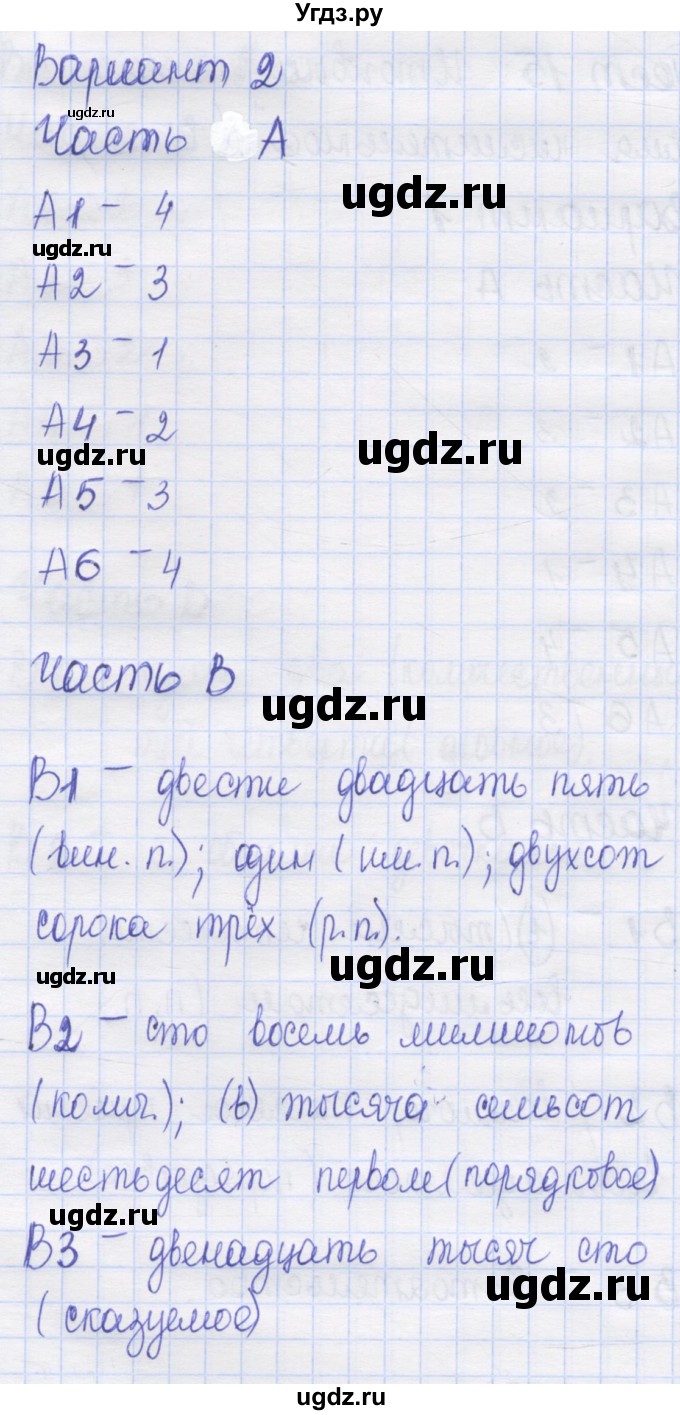 Угдз.ру
Вариант 2
ugdz.ru
Часть А
ugdz.ru
А1 - 4
ugdz.ru
А2 - 3
А3 - 1
А4 - 2
ugdz.ru
ugdz.ru
А5 - 3
А6 - 4
Часть В
ugdz.ru
В1 - двести двадцать пять
(вин. п.); один (им. п.); двухсот
сорока трёх (р.п.).
ugdz.ru
ugdz.ru
В2 - сто восемь миллионов
(колич.); (в) тысяча семьсот
шестьдесят первом (порядковое)
ugdz.ru
В3 - двенадцать тысяч сто
ugdz.ru
(сказуемое)
ugdz.ru